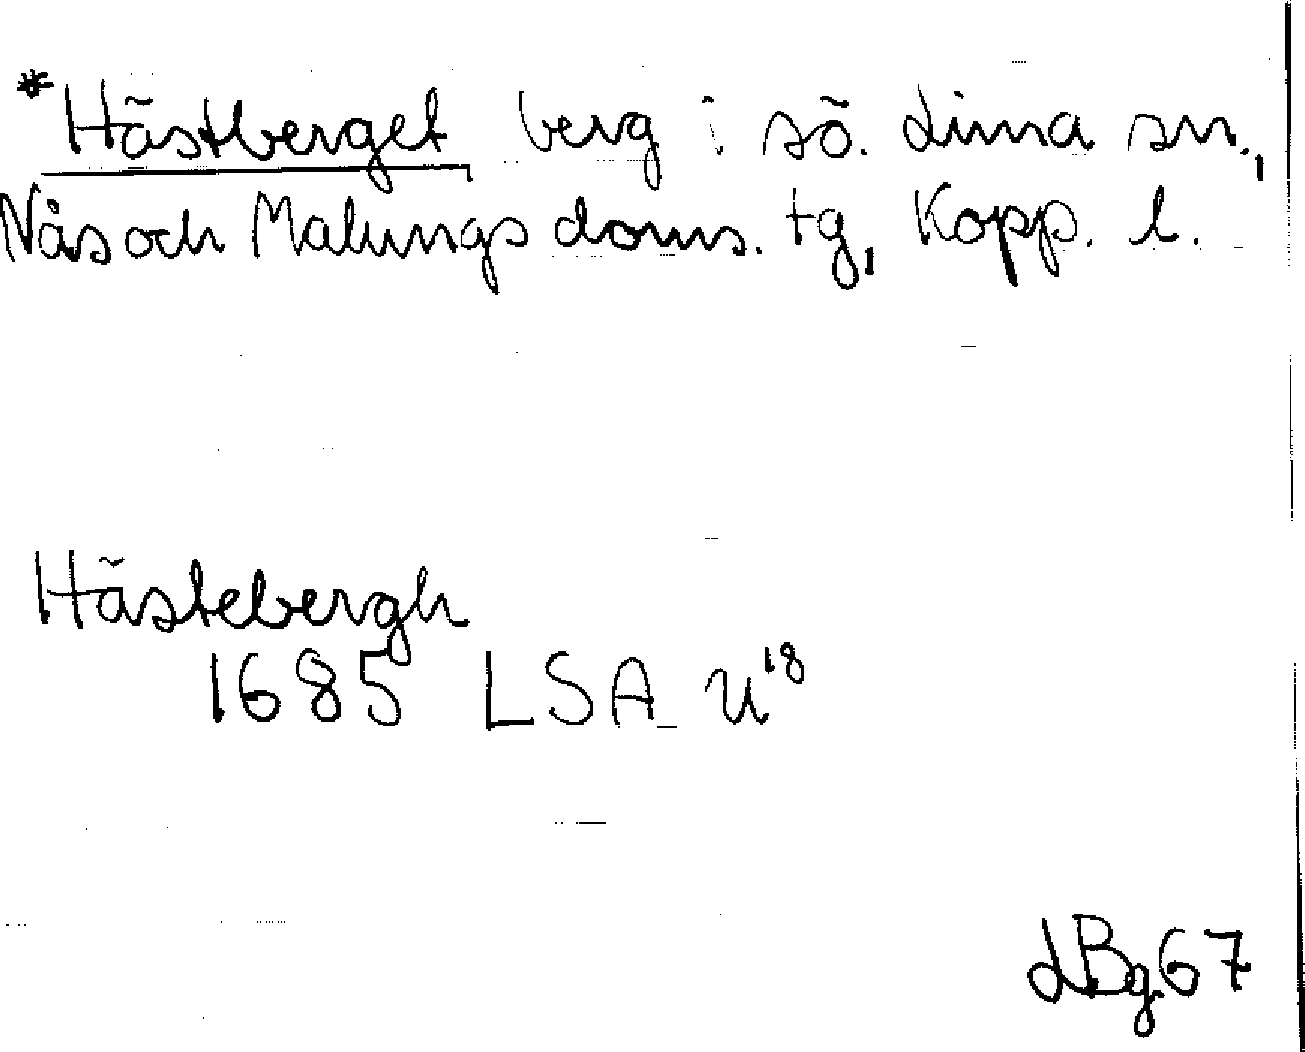 *Hästberget berg i sö. Lima sn.,
Nås och Malungs doms. tg, Kopp. l.
Hästebergh
1685 LSA U¹⁸
LBg 67